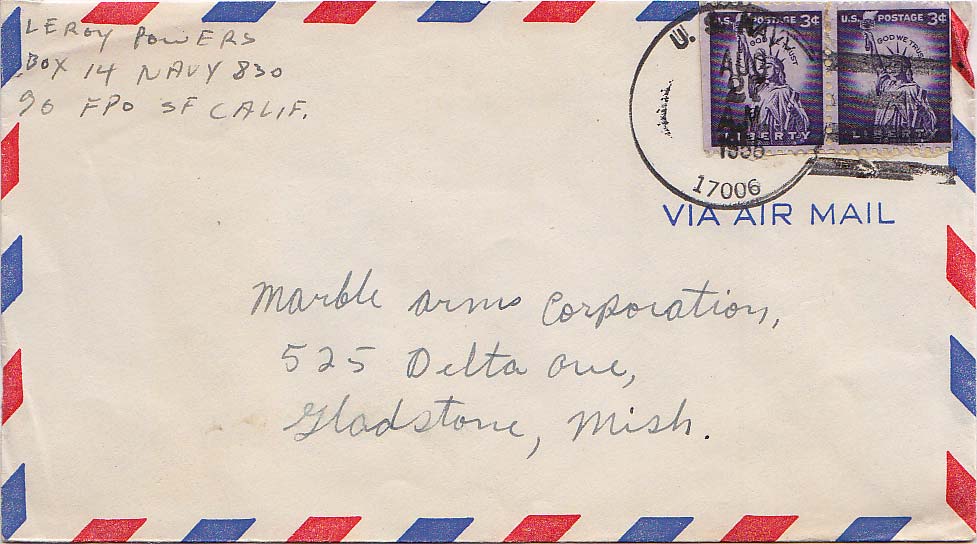 LEROY POWERS
BOX 14 NAVY 830
% FPO SF CALIF.
U.S. NAVY
AUG
AM
17006
U.S. POSTAGE 3¢
IN GOD WE TRUST
LIBERTY
U.S. POSTAGE 3¢
IN GOD WE TRUST
LIBERTY
VIA AIR MAIL
Marble Arms Corporation,
525 Delta Ave,
Gladstone, Mish.